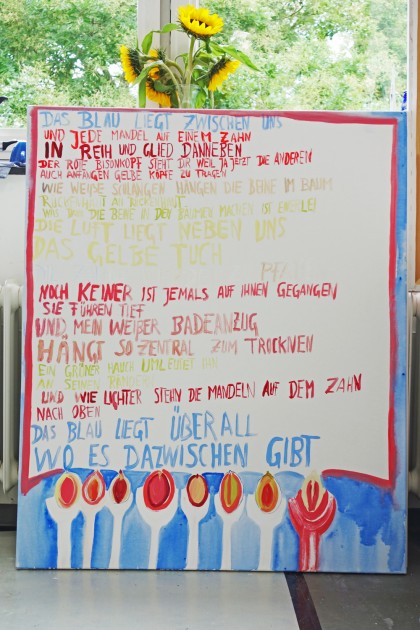 DAS BLAU LIEGT ZWISCHEN UNS
UND JEDE MANDEL AUF EINEM ZAHN
IN REIH UND GLIED DANNEBEN
DER ROTE BISONKOPF STEHT DIR WEIL JA JETZT DIE ANDEREN
AUCH ANFANGEN GELBE KÖPFE ZU TRAGEN
WIE WEIßE SCHLANGEN HÄNGEN DIE BEINE IM BAUM
RÜCKENHAUT AN RÜCKENHAUT
WAS DIE BEINE IN DEN BÄUMEN MACHEN IST EINERLEI
DIE LUFT LIEGT NEBEN UNS
DAS GELBE TUCH
NOCH KEINER IST JEMALS AUF IHNEN GEGANGEN
SIE FÜHREN TIEF
UND MEIN WEIßER BADEANZUG
HÄNGT SO ZENTRAL ZUM TROCKNEN
EIN GRÜNER HAUCH UMLEUCHTET IHN
AN SEINEN RÄNDERN
UND WIE LICHTER STEHN DIE MANDELN AUF DEM ZAHN
NACH OBEN
DAS BLAU LIEGT ÜBERALL
WO ES DAZWISCHEN GIBT